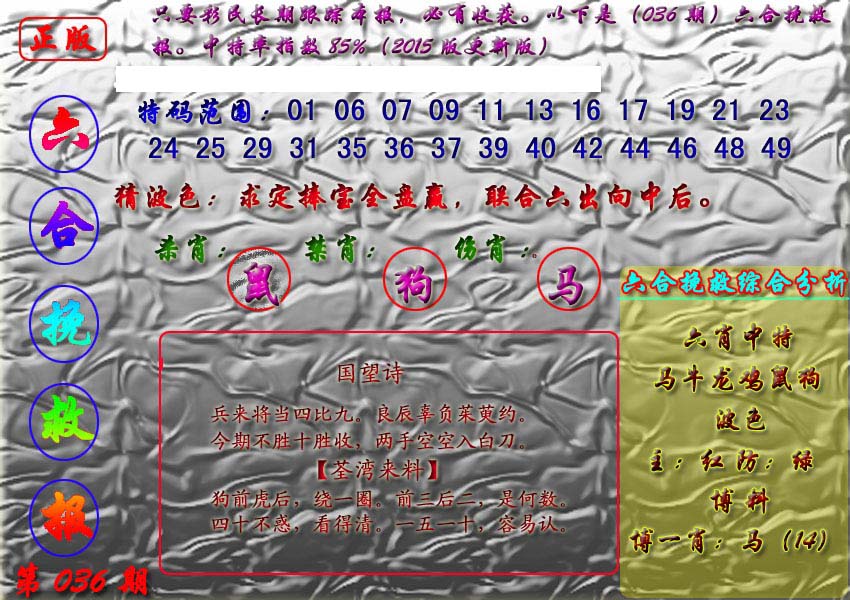 正版
只要彩民长期跟踪本报，必有收获。以下是（036期）六合挽救
报。中特率指数85%（2015版更新版）
六
合
挽
救
报
第036期
特码范围：01 06 07 09 11 13 16 17 19 21 23
24 25 29 31 35 36 37 39 40 42 44 46 48 49
猜波色：求定捧宝全盘赢，联合六出向中后。
杀肖： 禁肖： 伤肖：
鼠 狗 马
国望诗
兵来将当四比九。良辰辜负茱萸约。
今期不胜十胜收，两手空空入白刀。
【荃湾来料】
狗前虎后，绕一圈。前三后二，是何数。
四十不惑，看得清。一五一十，容易认。
六合挽救综合分析
六肖中特
马牛龙鸡鼠狗
波色
主：红防：绿
博料
博一肖：马（14）